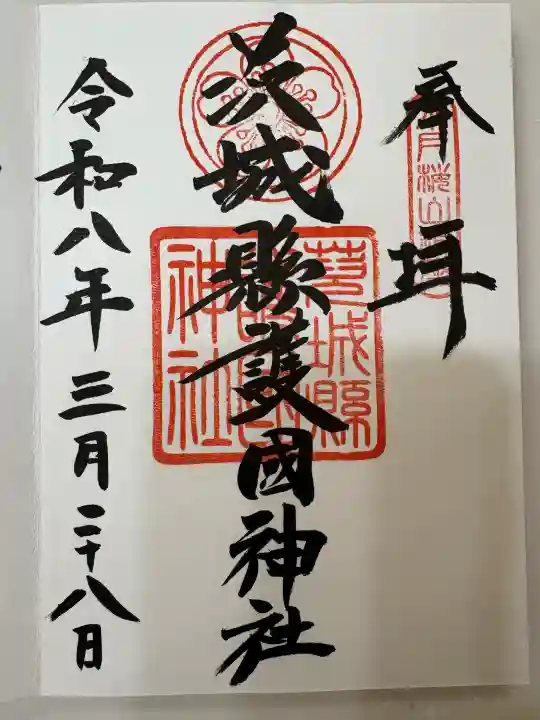 奉拝
茨城縣護國神社
令和八年三月二十八日
茨城縣
護國
神社